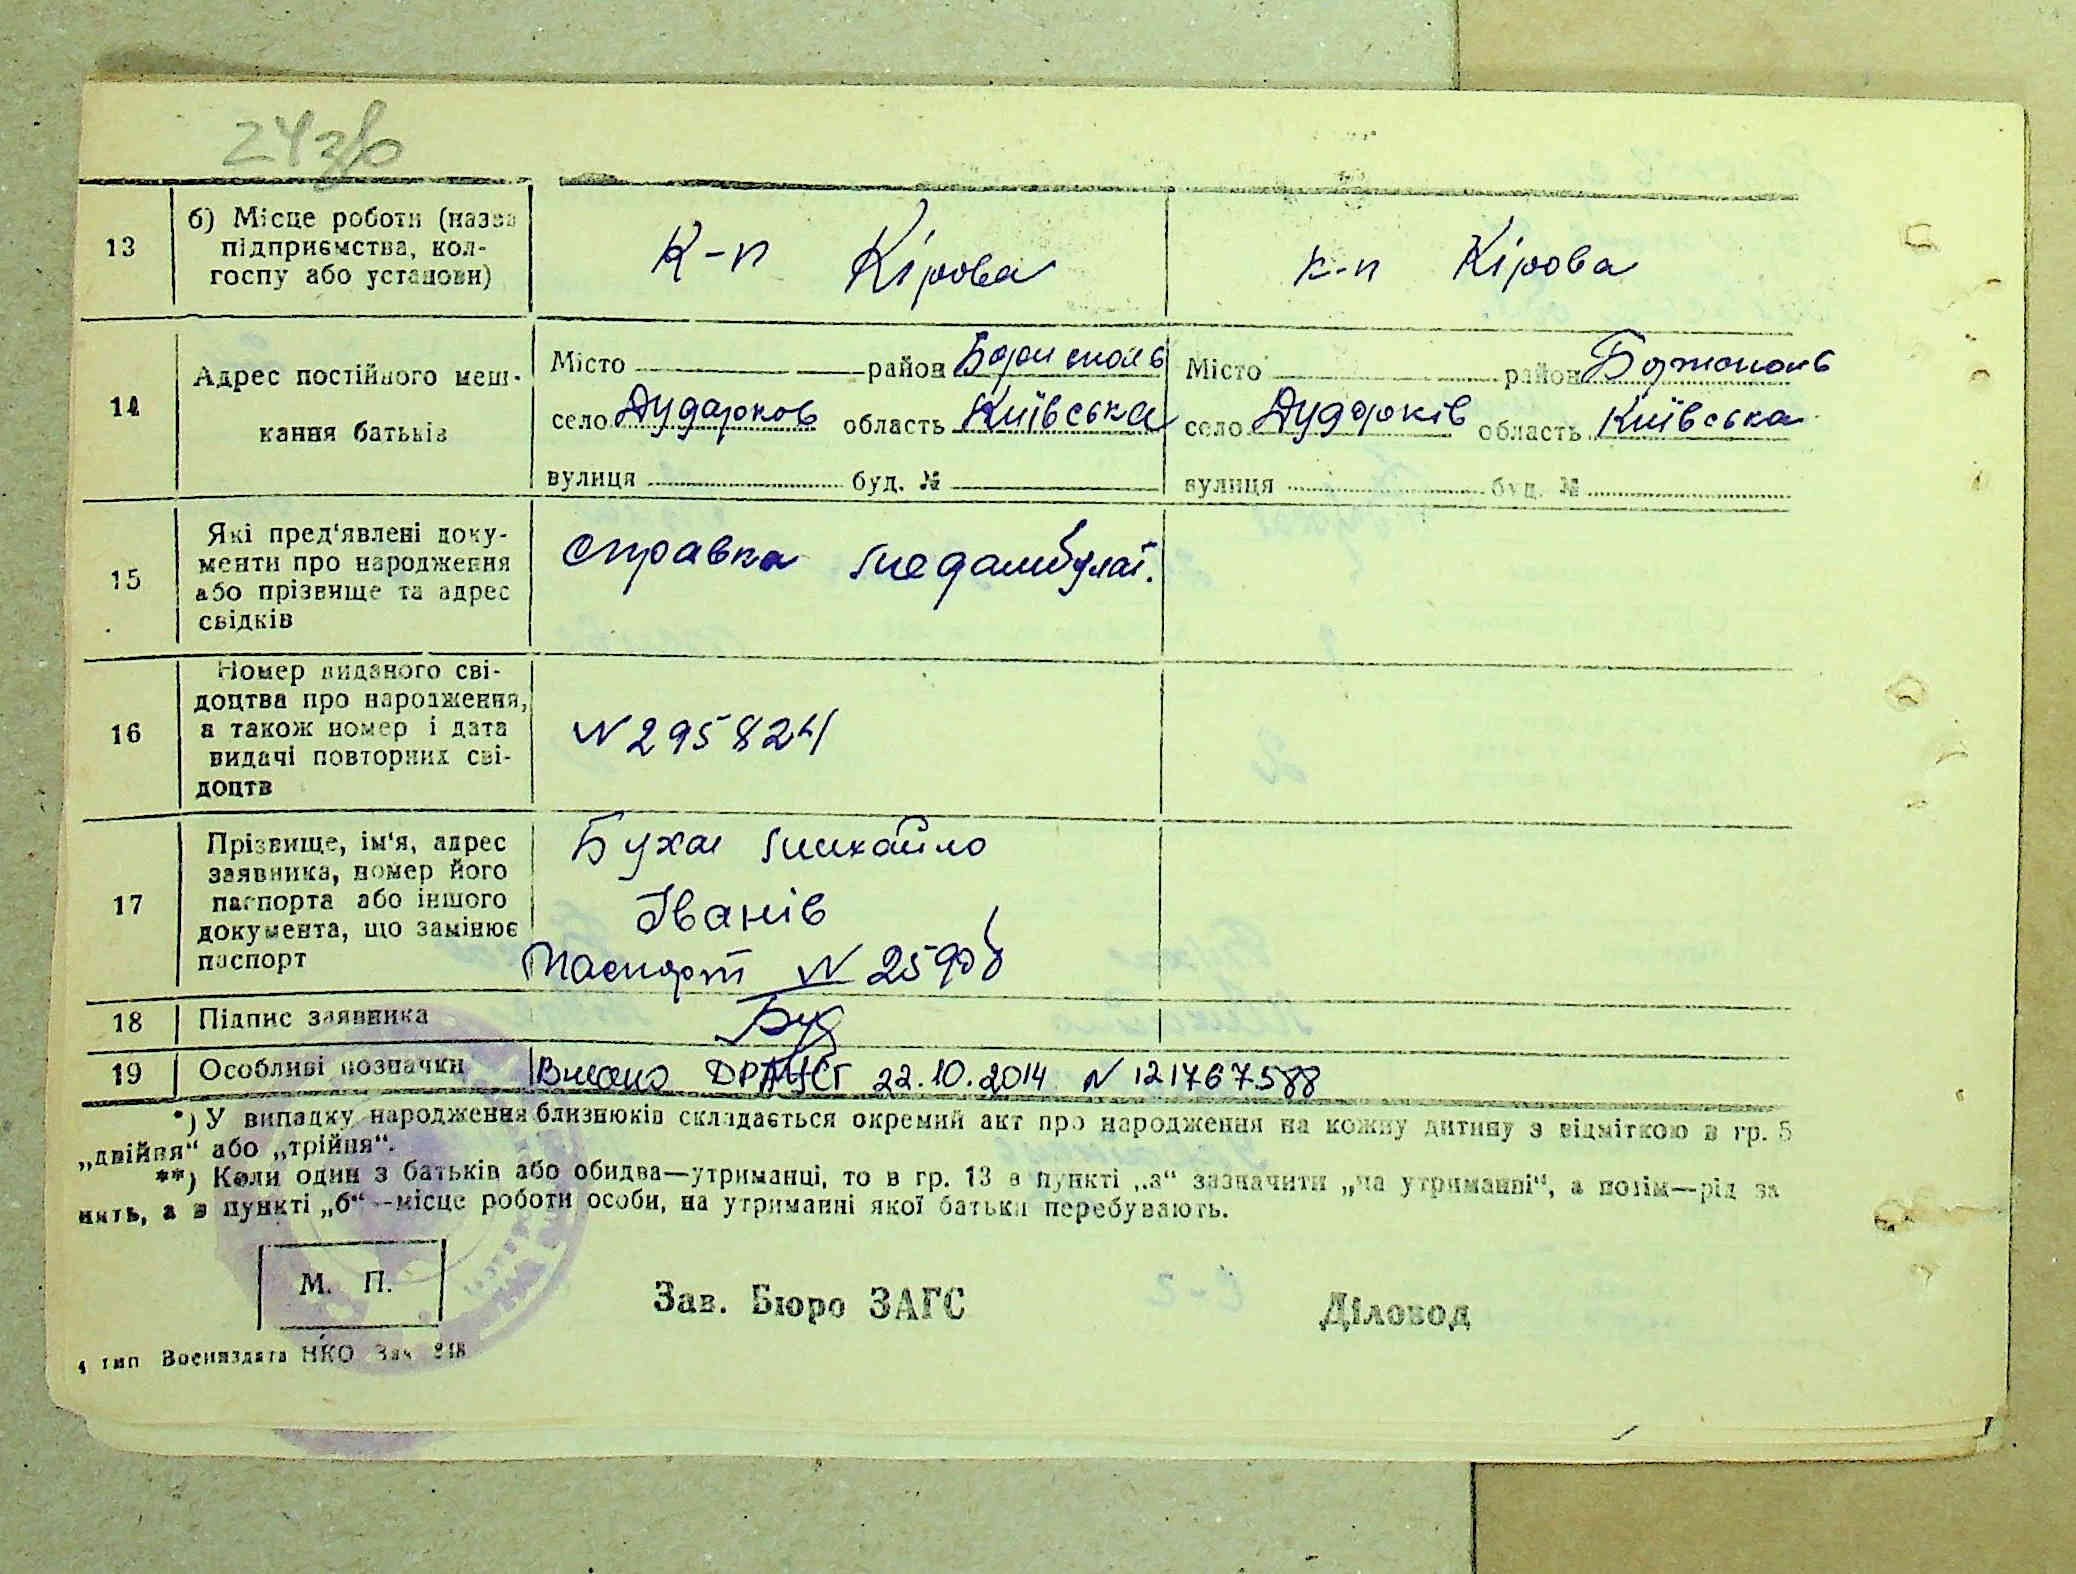 24зв
13 б) Місце роботи (назва
підприємства, кол-
госпу або установи)
К-п Кірова к-п Кірова
14 Адрес постійного меш-
кання батьків
Місто район Бориспольв Місто район
село Дударков область Київська село Дударків область Київська
вулиця буд. № вулиця буд. №
15 Які пред'явлені доку-
менти про народження
або прізвище та адрес
свідків
справка медамбулат.
16 Номер виданого сві-
доцтва про народження,
а також номер і дата
видачі повторних сві-
доцтв
N 295824
17 Прізвище, ім'я, адрес
заявника, номер його
паспорта або іншого
документа, що замінює
паспорт
Бухал Михайло
Іванів
Паспорт N
18 Підпис заявника Бух
19 Особливі позначки Внесено ДРАЦСГ 22.10.2014 N 121767588
*) У випадку народження близнюків складається окремий акт про народження на кожну дитину з відміткою в гр. 5
„двійня“ або „трійня“.
**) Коли один з батьків або обидва—утриманці, то в гр. 13 в пункті „а“ зазначити „на утриманні“, а потім—рід за
нять, а в пункті „б“—місце роботи особи, на утриманні якої батьки перебувають.
М. П.
Зав. Бюро ЗАГС Діловод
4 тип Воениздата НКО Зак 218